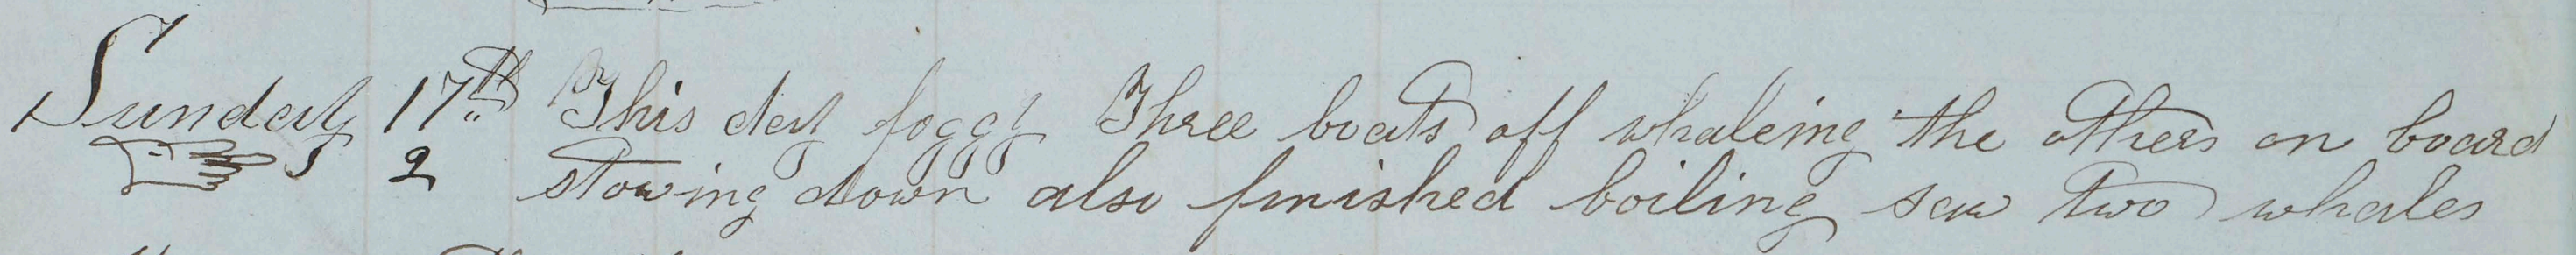 Sunday 17th This day foggy Three boats off whaleing the others on board
2 stowing down also finished boiling saw two whales